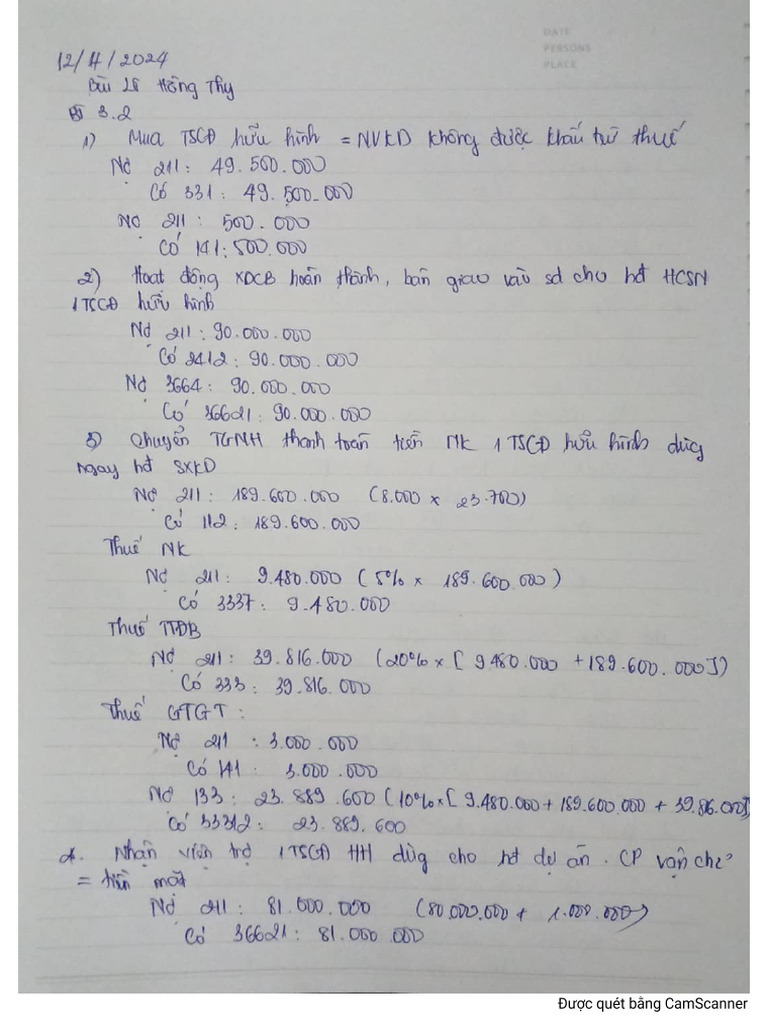 DATE
PERSONS
PLACE
12/4/2024
Bùi Lê Hồng Thy
B 3.2
1) Mua TSCĐ hữu hình = NVKD không được khấu trừ thuế
Nợ 211: 49.500.000
Có 331: 49.500.000
Nợ 211: 500.000
Có 141: 500.000
2) Hoạt động XDCB hoàn thành, bàn giao vào sd cho hđ HCSN
1 TSCĐ hữu hình
Nợ 211: 90.000.000
Có 2412: 90.000.000
Nợ 3664: 90.000.000
Có 36621: 90.000.000
3) Chuyển TGNH thanh toán tiền NK 1 TSCĐ hữu hình dùg
ngay hđ SXKD
Nợ 211: 189.600.000 (8.000 x 23.700)
Có 112: 189.600.000
Thuế NK
Nợ 211: 9.480.000 (5% x 189.600.000)
Có 3337: 9.480.000
Thuế TTĐB
Nợ 211: 39.816.000 (20% x [9480.000 + 189.600.000])
Có 333: 39.816.000
Thuế GTGT:
Nợ 211: 3.000.000
Có 141: 3.000.000
Nợ 133: 23.889.600 (10% x [9.480.000 + 189.600.000 + 39.816.000]
Có 33312: 23.889.600
4. Nhận viện trợ 1 TSCĐ HH dùg cho hđ dự án. CP vận chể
= tiền mặt
Nợ 211: 81.000.000 (80.000.000 + 1.000.000)
Có 36621: 81.000.000
Được quét bằng CamScanner